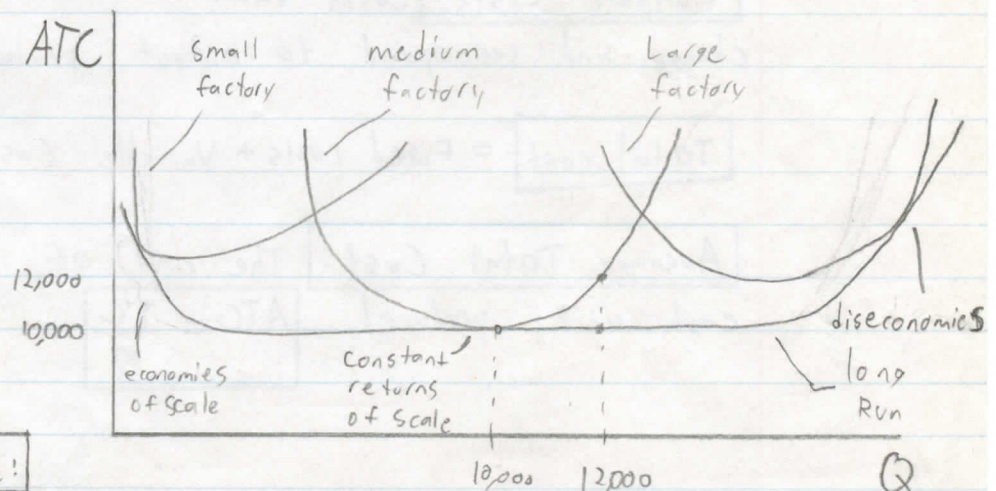 ATC
small
factory
medium
factory
Large
factory
12,000
10,000
economies
of scale
Constant
returns
of scale
diseconomies
long
Run
10,000
12,000
Q